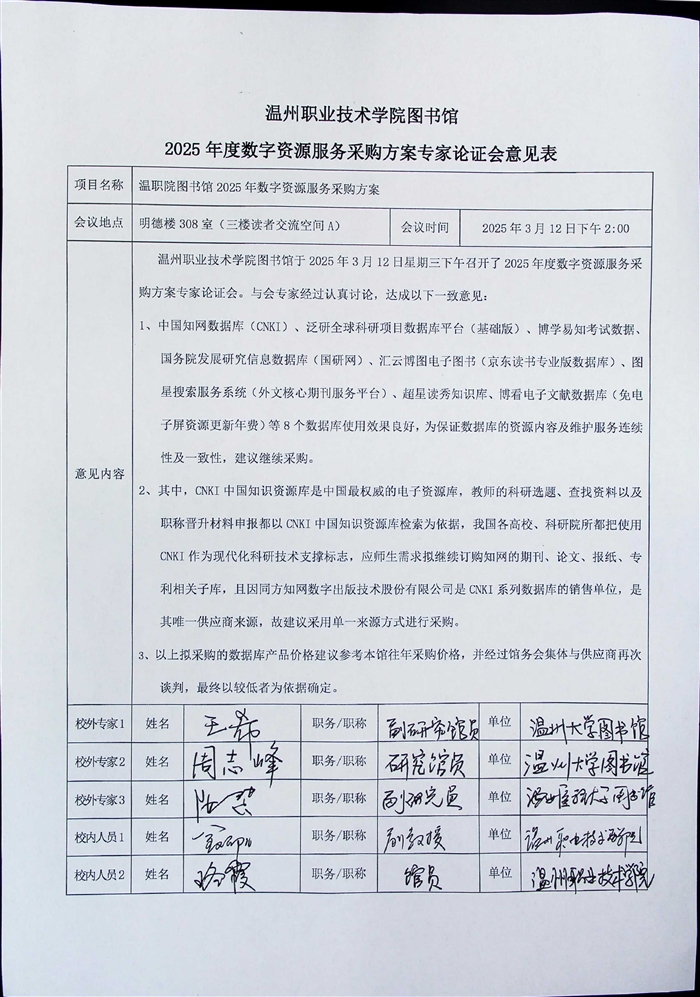 温州职业技术学院图书馆
2025 年度数字资源服务采购方案专家论证会意见表
项目名称 温职院图书馆 2025 年数字资源服务采购方案
会议地点 明德楼 308 室（三楼读者交流空间 A） 会议时间 2025 年 3 月 12 日下午 2:00
温州职业技术学院图书馆于 2025 年 3 月 12 日星期三下午召开了 2025 年度数字资源服务采
购方案专家论证会。与会专家经过认真讨论，达成以下一致意见：
1、中国知网数据库（CNKI）、泛研全球科研项目数据库平台（基础版）、博学易知考试数据、
国务院发展研究信息数据库（国研网）、汇云博图电子图书（京东读书专业版数据库）、图
星搜索服务系统（外文核心期刊服务平台）、超星读秀知识库、博看电子文献数据库（免电
子屏资源更新年费）等 8 个数据库使用效果良好，为保证数据库的资源内容及维护服务连续
性及一致性，建议继续采购。
意见内容
2、其中，CNKI 中国知识资源库是中国最权威的电子资源库，教师的科研选题、查找资料以及
职称晋升材料申报都以 CNKI 中国知识资源库检索为依据，我国各高校、科研院所都把使用
CNKI 作为现代化科研技术支撑标志，应师生需求拟继续订购知网的期刊、论文、报纸、专
利相关子库，且因同方知网数字出版技术股份有限公司是 CNKI 系列数据库的销售单位，是
其唯一供应商来源，故建议采用单一来源方式进行采购。
3、以上拟采购的数据库产品价格建议参考本馆往年采购价格，并经过馆务会集体与供应商再次
谈判，最终以较低者为依据确定。
校外专家 1 姓名 职务/职称 副研究馆员 单位 温州大学图书馆
校外专家 2 姓名 周志峰 职务/职称 研究馆员 单位 温州大学图书馆
校外专家 3 姓名 职务/职称 副研究员 单位 温州医科大学图书馆
校内人员 1 姓名 职务/职称 副教授 单位 温州职业技术学院
校内人员 2 姓名 职务/职称 馆员 单位 温州职业技术学院